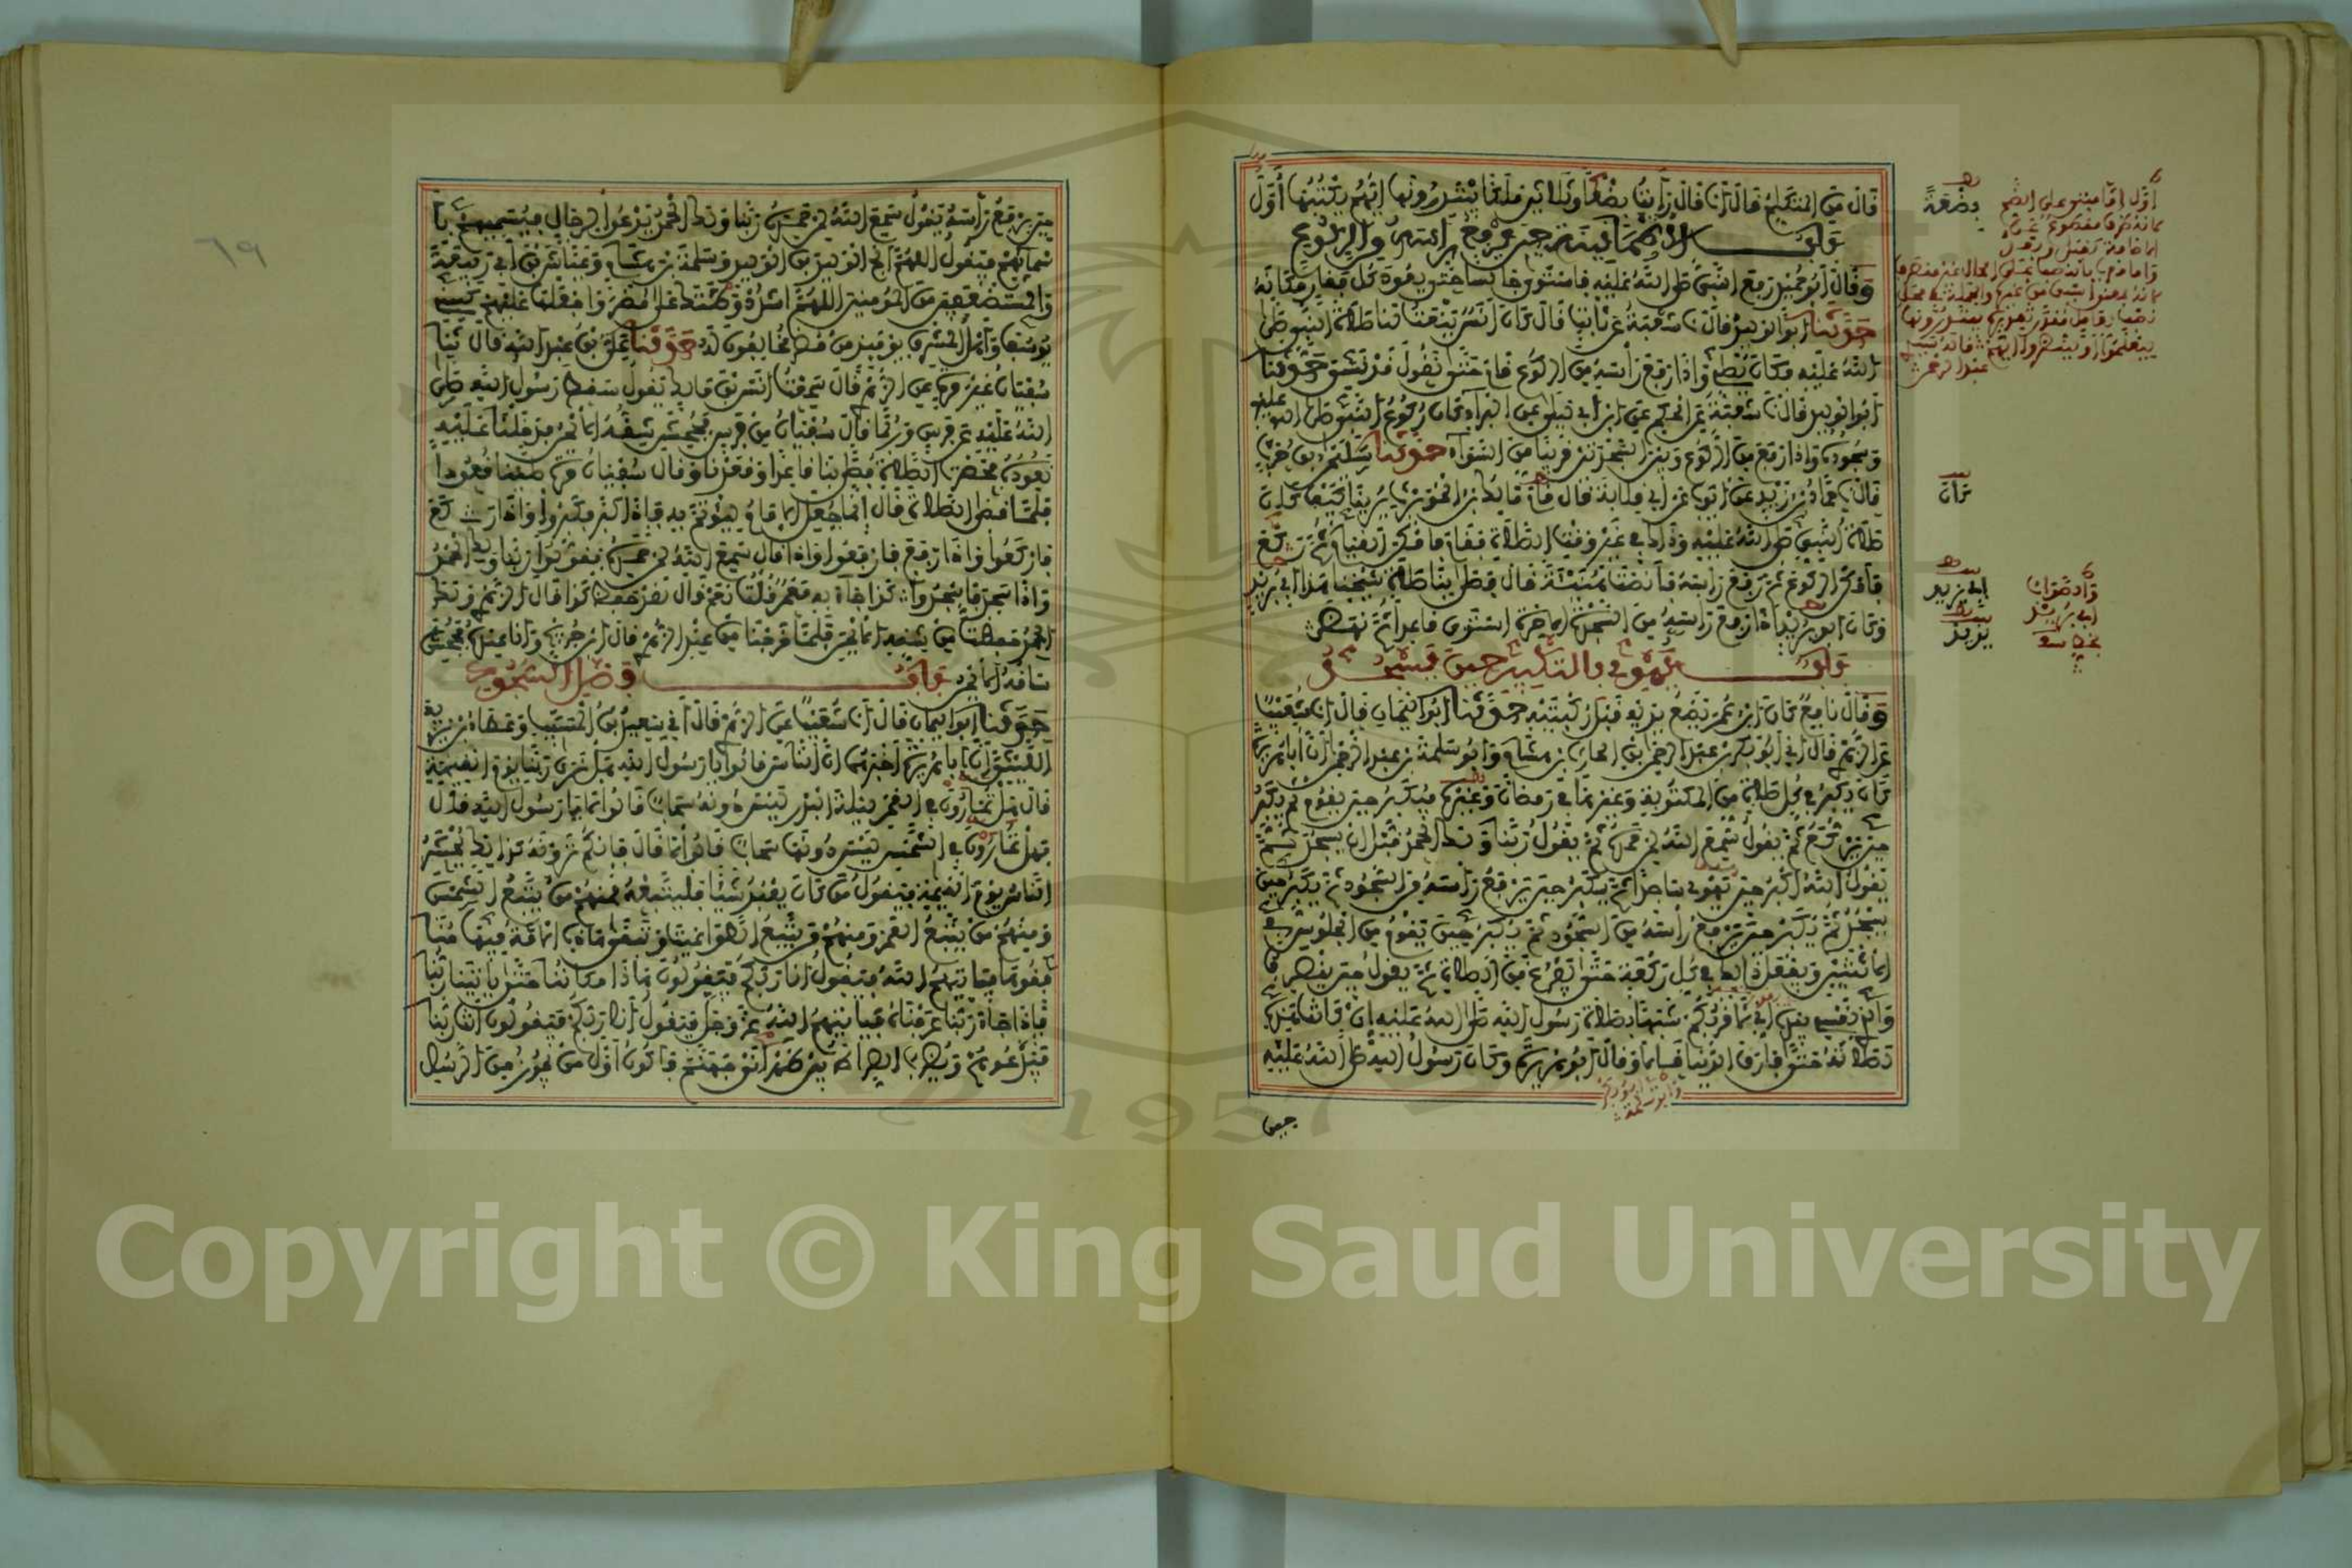 قال من المتكلم قال أنا قال رأيت بضعا وثلاثين ملكا يبتدرونها أيهم يكتبها أول
باب الاطمأنينة حين يرفع رأسه من الركوع
وقال أبو حميد رفع النبي صلى الله عليه فاستوى جالسا حتى يعود كل فقار مكانه
حدثنا أبو الوليد قال نا شعبة عن ثابت قال كان أنس ينعت لنا صلاة النبي صلى
الله عليه فكان يصلي وإذا رفع رأسه من الركوع قام حتى نقول قد نسي حدثنا
أبو الوليد قال نا شعبة عن الحكم عن ابن أبي ليلى عن البراء كان ركوع النبي صلى الله عليه
وسجوده وإذا رفع من الركوع وبين السجدتين قريبا من السواء حدثنا سليمن بن حرب
قال نا حماد بن زيد عن أيوب عن أبي قلابة قال قام مالك بن الحويرث يرينا كيف كان
صلاة النبي صلى الله عليه وذاك في غير وقت الصلاة فقام فأمكن القيام ثم ركع
فأمكن الركوع ثم رفع رأسه فأنصت هنية قال فصلى بنا صلاة شيخنا هذا أبي بريد
وكان أبو بريد إذا رفع رأسه من السجدة الآخرة استوى قاعدا ثم نهض
باب يهوي بالتكبير حين يسجد
وقال نافع كان ابن عمر يضع يديه قبل ركبتيه حدثنا أبو اليمان قال أنا شعيب
عن الزهري قال أني أبو بكر بن عبد الرحمن بن الحارث بن هشام وأبو سلمة بن عبد الرحمن أن أبا هريرة
كان يكبر في كل صلاة من المكتوبة وغيرها في رمضان وغيره فيكبر حين يقوم ثم يكبر
حين يركع ثم يقول سمع الله لمن حمده ثم يقول ربنا ولك الحمد قبل أن يسجد ثم
يقول الله أكبر حين يهوي ساجدا ثم يكبر حين يرفع رأسه من السجود ثم يكبر حين
يسجد ثم يكبر حين يرفع رأسه من السجود ثم يكبر حين يقوم من الجلوس في
الاثنتين ويفعل ذلك في كل ركعة حتى يفرغ من الصلاة ثم يقول حين ينصرف
والذي نفسي بيده إني لأقربكم شبها بصلاة رسول الله صلى الله عليه إن كانت هذه
لصلاته حتى فارق الدنيا قالا وقال أبو هريرة وكان رسول الله صلى الله عليه
حين
بضعة
كان
أبي يزيد
يزيد
حين يرفع رأسه يقول سمع الله لمن حمده ربنا ولك الحمد يدعوا لرجال فيسميهم بأ
سمائهم فيقول اللهم أنج الوليد بن الوليد وسلمة بن هشام وعياش بن أبي ربيعة
والمستضعفين من المومنين اللهم اشدد وطأتك على مضر واجعلها عليهم كسني
يوسف وأهل المشرق يومئذ من مضر مخالفون له حدثنا علي بن عبد الله قال نا
سفيان غير مرة عن الزهري قال سمعت أنس بن مالك يقول سقط رسول الله صلى
الله عليه عن فرس وربما قال سفيان من فرس فجحش شقه الأيمن فدخلنا عليه
نعوده فحضرت الصلاة فصلى بنا قاعدا وقعدنا وقال سفيان مرة صلينا قعودا
فلما قضى الصلاة قال إنما جعل الإمام ليوتم به فإذا كبر فكبروا وإذا ركع
فاركعوا وإذا رفع فارفعوا وإذا قال سمع الله لمن حمده فقولوا ربنا ولك الحمد
وإذا سجد فاسجدوا كذا جاء به معمر قلت نعم قال لقد حفظ كذا قال الزهري ولك
الحمد حفظت من شقه الأيمن فلما خرجنا من عند الزهري قال ابن جريج وأنا عنده فجحش
ساقه الأيمن باب فضل السجود
حدثنا أبو اليمان قال أنا شعيب عن الزهري قال أني سعيد بن المسيب وعطاء بن يزيد
الليثي أن أبا هريرة أخبرهما أن الناس قالوا يا رسول الله هل نرى ربنا يوم القيمة
قال هل تمارون في القمر ليلة البدر ليس دونه سحاب قالوا لا يا رسول الله قال
فهل تمارون في الشمس ليس دونها سحاب قالوا لا قال فإنكم ترونه كذلك يحشر
الناس يوم القيمة فيقول من كان يعبد شيئا فليتبعه فمنهم من يتبع الشمس
ومنهم من يتبع القمر ومنهم من يتبع الطواغيت وتبقى هذه الأمة فيها منا
فقوها فياتيهم الله فيقول أنا ربكم فيقولون هذا مكاننا حتى ياتينا ربنا
فإذا جاء ربنا عرفناه فياتيهم الله عز وجل فيقول أنا ربكم فيقولون أنت ربنا
فيدعوهم ويضرب الصراط بين ظهراني جهنم فأكون أول من يجوز من الرسل
٦٩
Copyright © King Saud University
1957